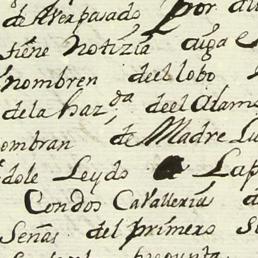 de Aver pasado Por
tiene Notizia
nombren de el lobo
de la haz.da de el Alamo
nombran de Madre
dole Leydo La
Con dos Cavalleria
Señas del primero
pregunta